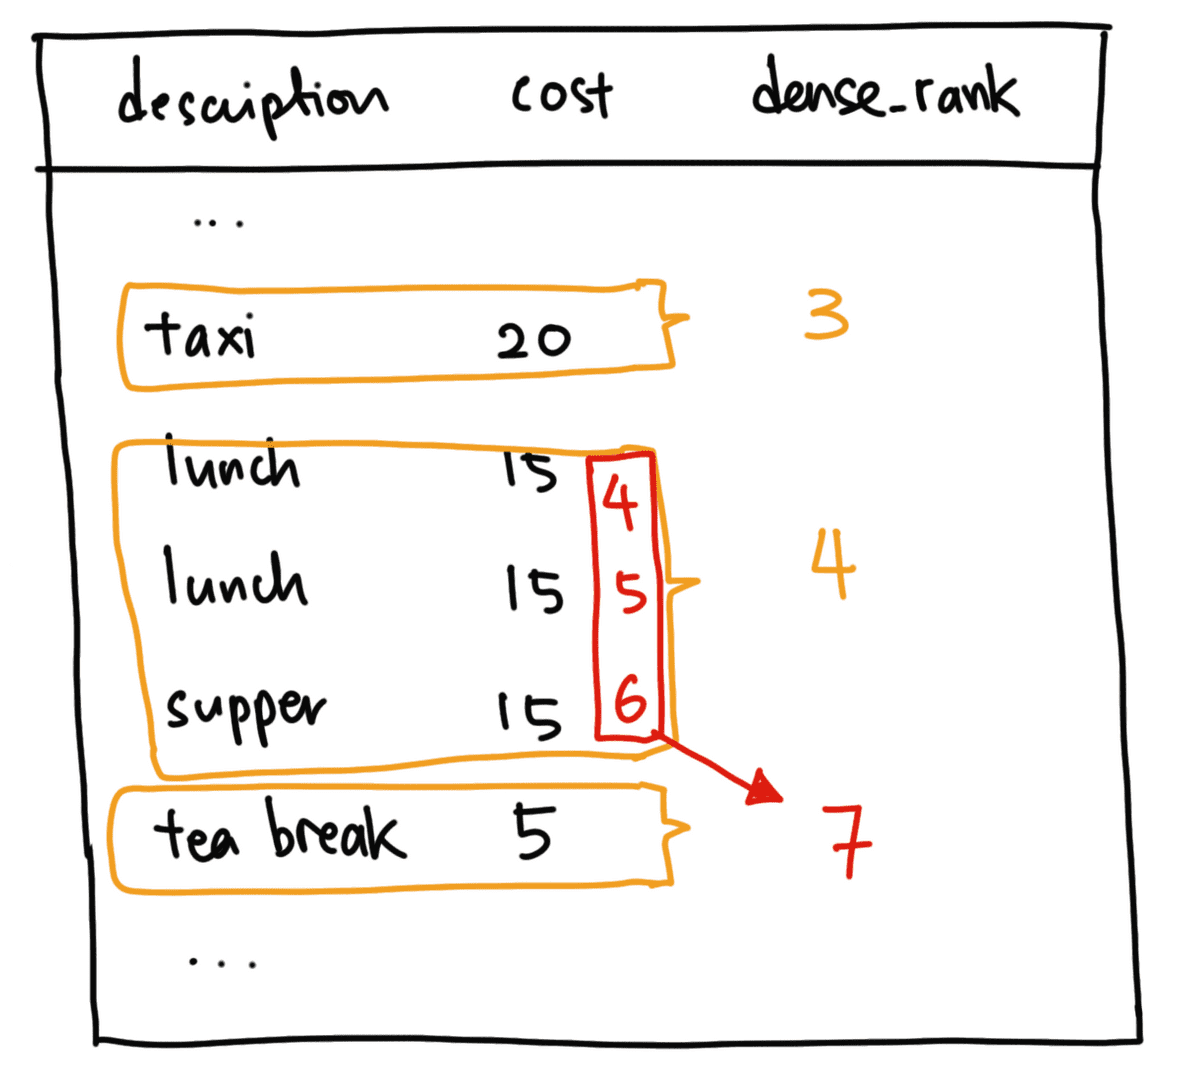 description cost dense_rank
...
taxi 20 3
lunch 15 4
lunch 15 5 4
supper 15 6
tea break 5 7
...